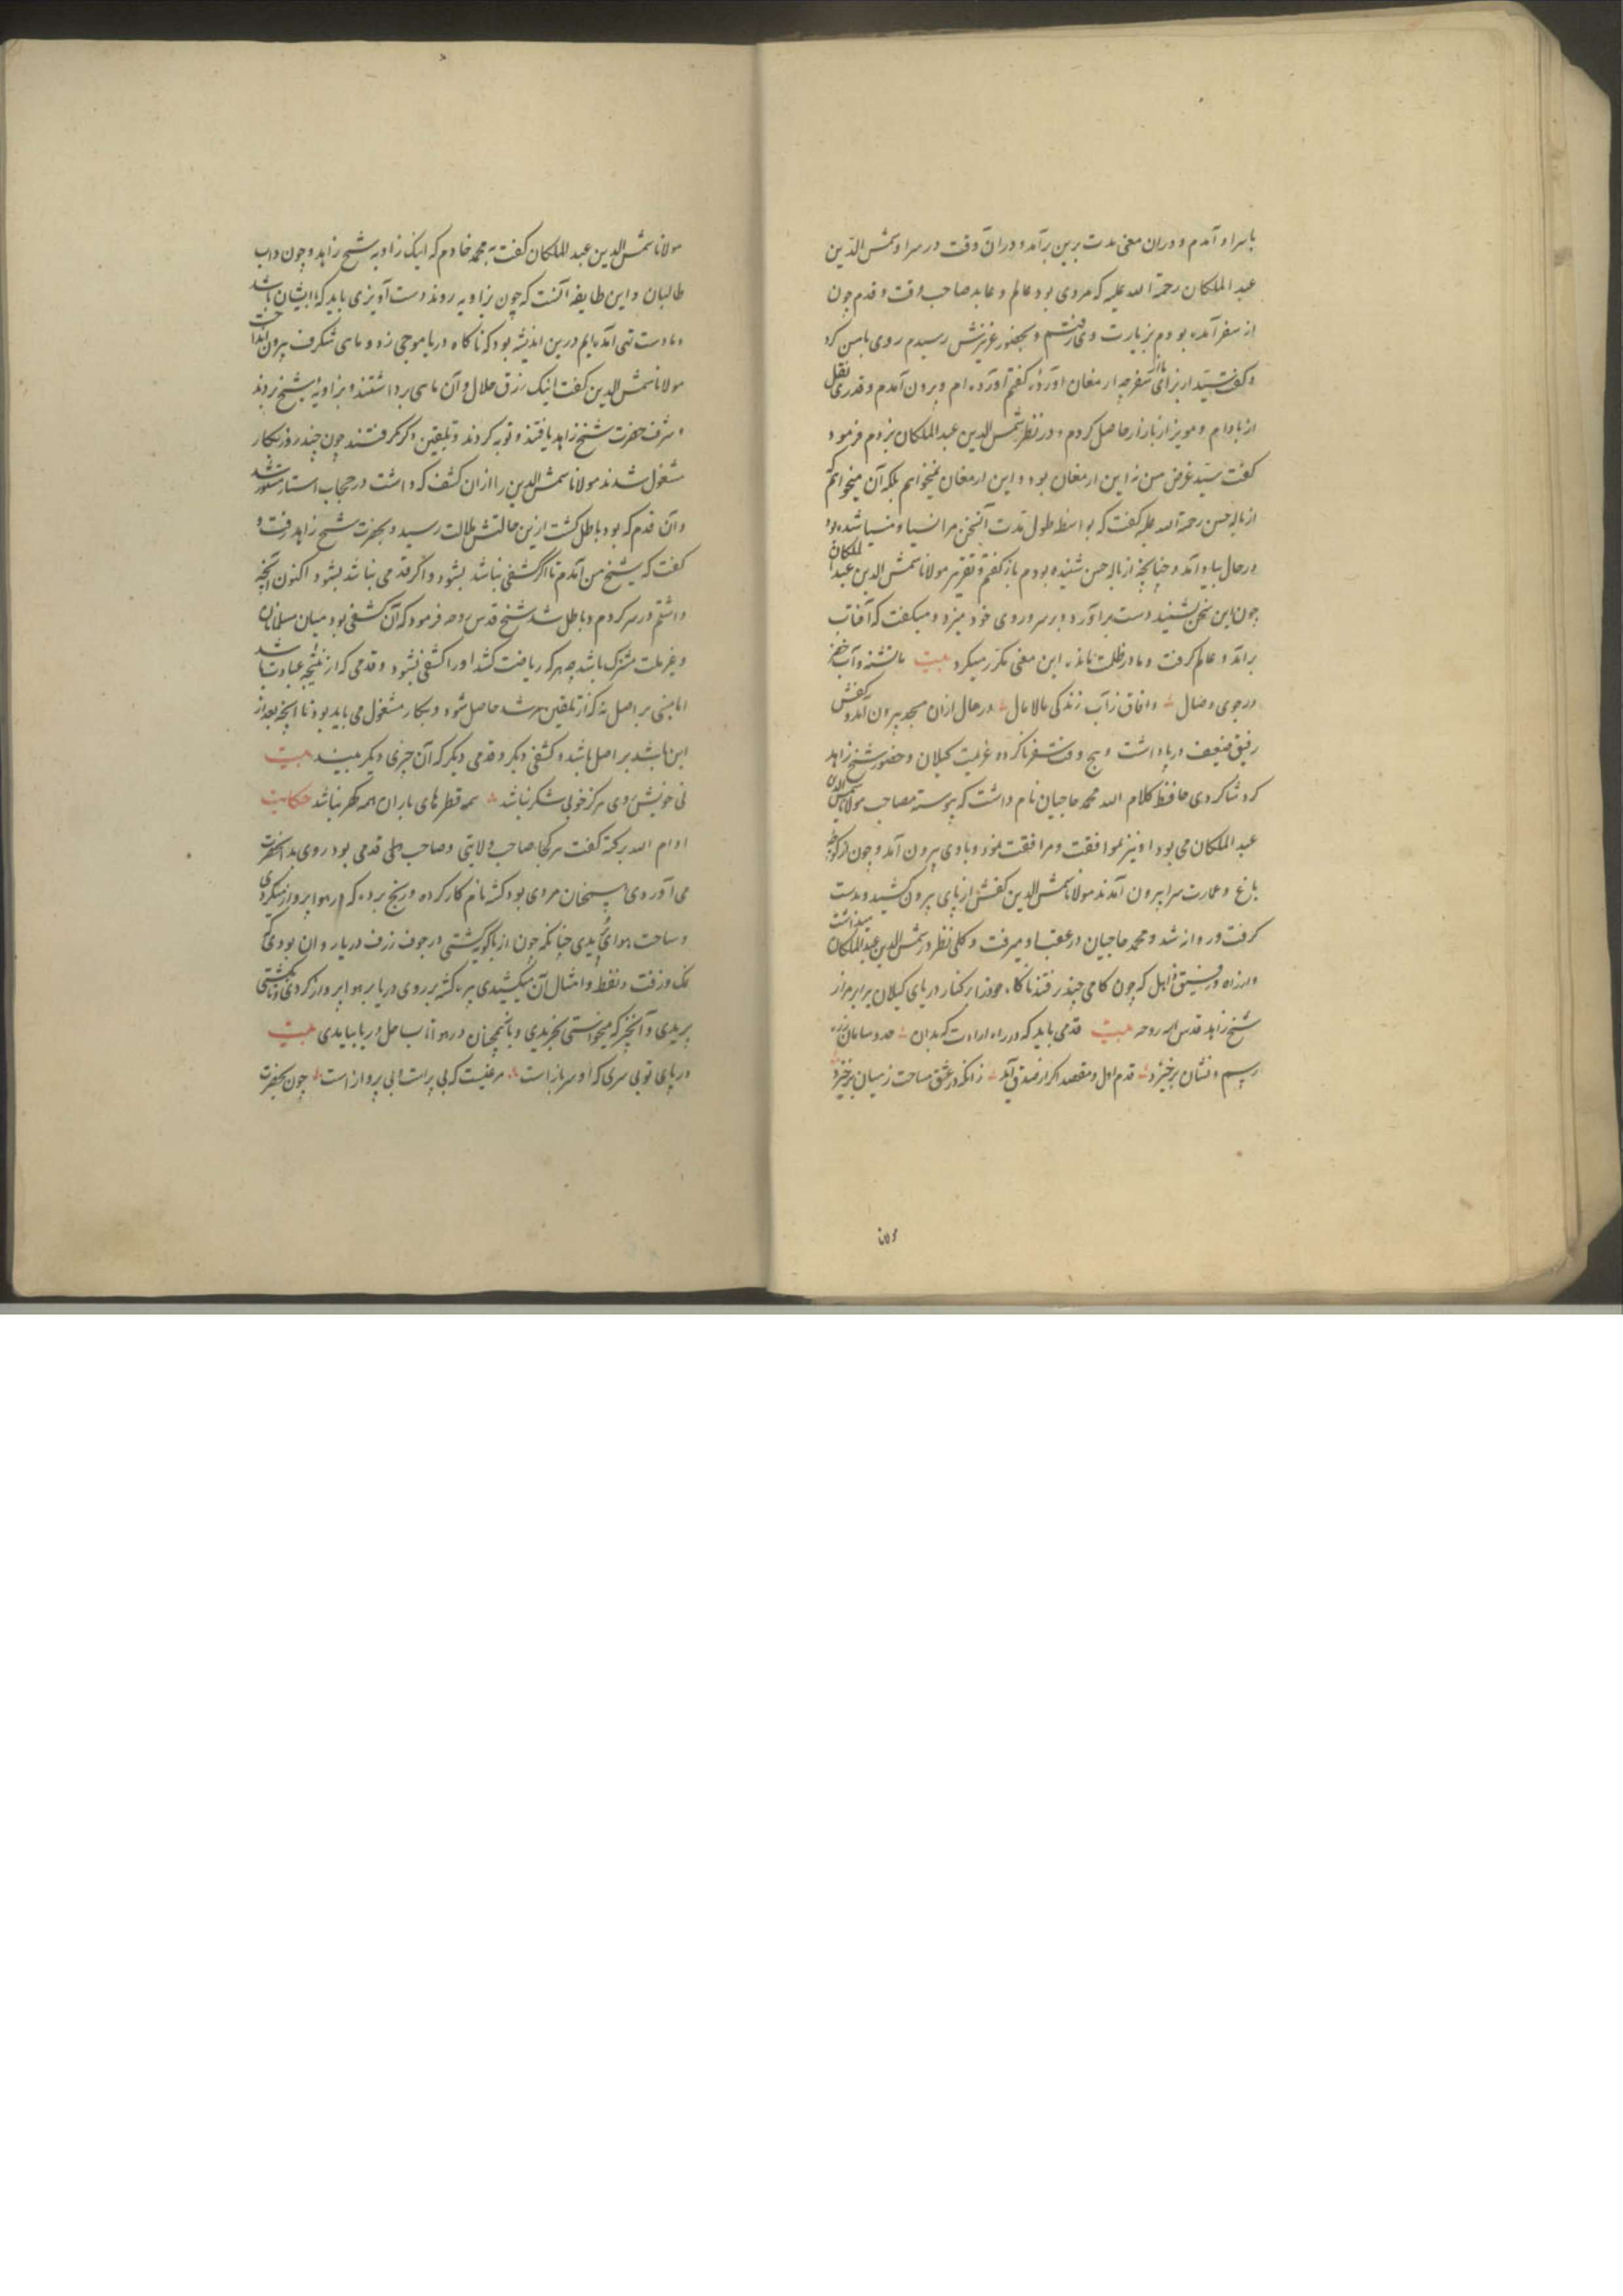 باسراو آمدم و دران معنی مدت برین برآمد و دران وقت در سراو شمس الدین
عبد الملکان رحمة الله علیه که مردی بود عالم و عابد صاحب وقت و قدم چون
از سفر آمده بودم بزیارت وی رفتم و بحضور عزیزش رسیدم روی بامن کرد
و گفت سید از برای ما از سفر چه ارمغان آوردهٔ گفتم آورده ام و بیرون آمدم و قدری نقل
از بادام و مویز از بازار حاصل کردم و در نظر شمس الدین عبد الملکان بردم فرمود
گفت سید غرض من نه این ارمغان بود و این ارمغان نمیخواهم بلکه آن میخواهم که
از باله حسن رحمة الله علیه گفت که بواسطه طول مدت آن سخن مرا نسیا منسیا شده بود
درحال بیاد آمد و چنانچه از باله حسن شنیده بودم باز گفتم و تقریر مولانا شمس الدین عبد الملکان
چون این سخن بشنید دست برآورد و بر سر و روی خود میزد و میگفت که آفتاب
برآمد و عالم گرفت و ما در ظلمت مانده این معنی مکرر میکرد بیت ما تشنه و آب خضر
در جوی وصال وافاق ز آب زندگی مالامال درحال ازان مسجد بیرون آمد و کفش
رفیق ضعیف در پا داشت و هیچ وقت سفر ناکرده و عزیمت گیلان و حضور شیخ زاهد
کرد شاگردی حافظ کلام الله محمد حاجیان نام داشت که پیوسته مصاحب مولانا شمس الدین
عبد الملکان می بود او نیز موافقت و مرافقت نمود و با وی بیرون آمد و چون از کوچه
باغ و عمارت سرا بیرون آمدند مولانا شمس الدین کفش از پای بیرون کشید و بدست
گرفت و روانه شد و محمد حاجیان در عقب او میرفت و کلی نظر در شمس الدین عبد الملکان میداشت
و از راه و رفیق ذاهل که چون گامی چند رفتند ناگاه خود را بر کنار دریای گیلان برابر مزار
شیخ زاهد قدس الله روحه بیت قدمی باید که در راه ارادت که بدان حد و سامان
رسم و نشان برخیزد قدم اول و مقصد اگر از صدق آید زانکه در عشق مساحت ز میان برخیزد
مولانا
مولانا شمس الدین عبد الملکان گفت به محمد خادم که اینک زاویه شیخ زاهد و چون داب
طالبان و این طایفه آنست که چون بزاویه روند دست آویزی باید که با ایشان باشد
و ما دست تهی آمده ایم درین اندیشه بود که ناگاه دریا موجی زد و ماهی شگرف بیرون انداخت
مولانا شمس الدین گفت اینک رزق حلال و آن ماهی برداشتند و بزاویه شیخ بردند
و شرف حضرت شیخ زاهد یافتند و توبه کردند و تلقین ذکر گرفتند چون چند روز بکار
مشغول شدند مولانا شمس الدین را ازان کشف که داشت در حجاب استار مستور شد
و آن قدم که بود باطل گشت ازین حالتش ملالت رسید و بحضرت شیخ زاهد رفت و
گفت که شیخ من آمدم تا اگر کشفی نباشد بشود و اگر قدمی نباشد بشود اکنون آنچه
داشتم در سر کردم و باطل شد شیخ قدس روحه فرمود که آن کشفی بود میان مسلمانان
و غیر ملت مشترک باشد چه هرکه ریاضت کشد او را کشفی بشود و قدمی که از نتیجه عبادت باشد
اما مبنی بر اصل نه که از تلقین مرشد حاصل شود و بکار مشغول می باید بود تا آنچه بعد از
این باشد بر اصل باشد و کشفی دیگر و قدمی دیگر که آن چیزی دیگر ببیند بیت
نی خویش روی هرگز خوبی شکر نباشد همه قطرهای باران همه گهر نباشد حکایت
ادام الله برکته گفت هرکجا صاحب ولایتی و صاحب طی قدمی بود روی بدان حضرت
می آوردی سنجان مردی بود گشته نام کار کرده و رنج برده که در هوا پرواز میکردی
و ساحت هوای بریدی چنانکه چون از باکو کشتی در جوف زرف دریا روان بودی
نمک و زفت و نفط و امثال آن میکشیدی پره گشته بر روی دریا بر هوا پرواز کردی و تا کشتی
بریدی و آنچیز که میخواستی بخریدی و باهمچنان در هوا تا بساحل دریا بیامدی بیت
در پای تو بی سری که او سرباز است مرغیست که بی پر است و بی پرواز است چون بحضرت